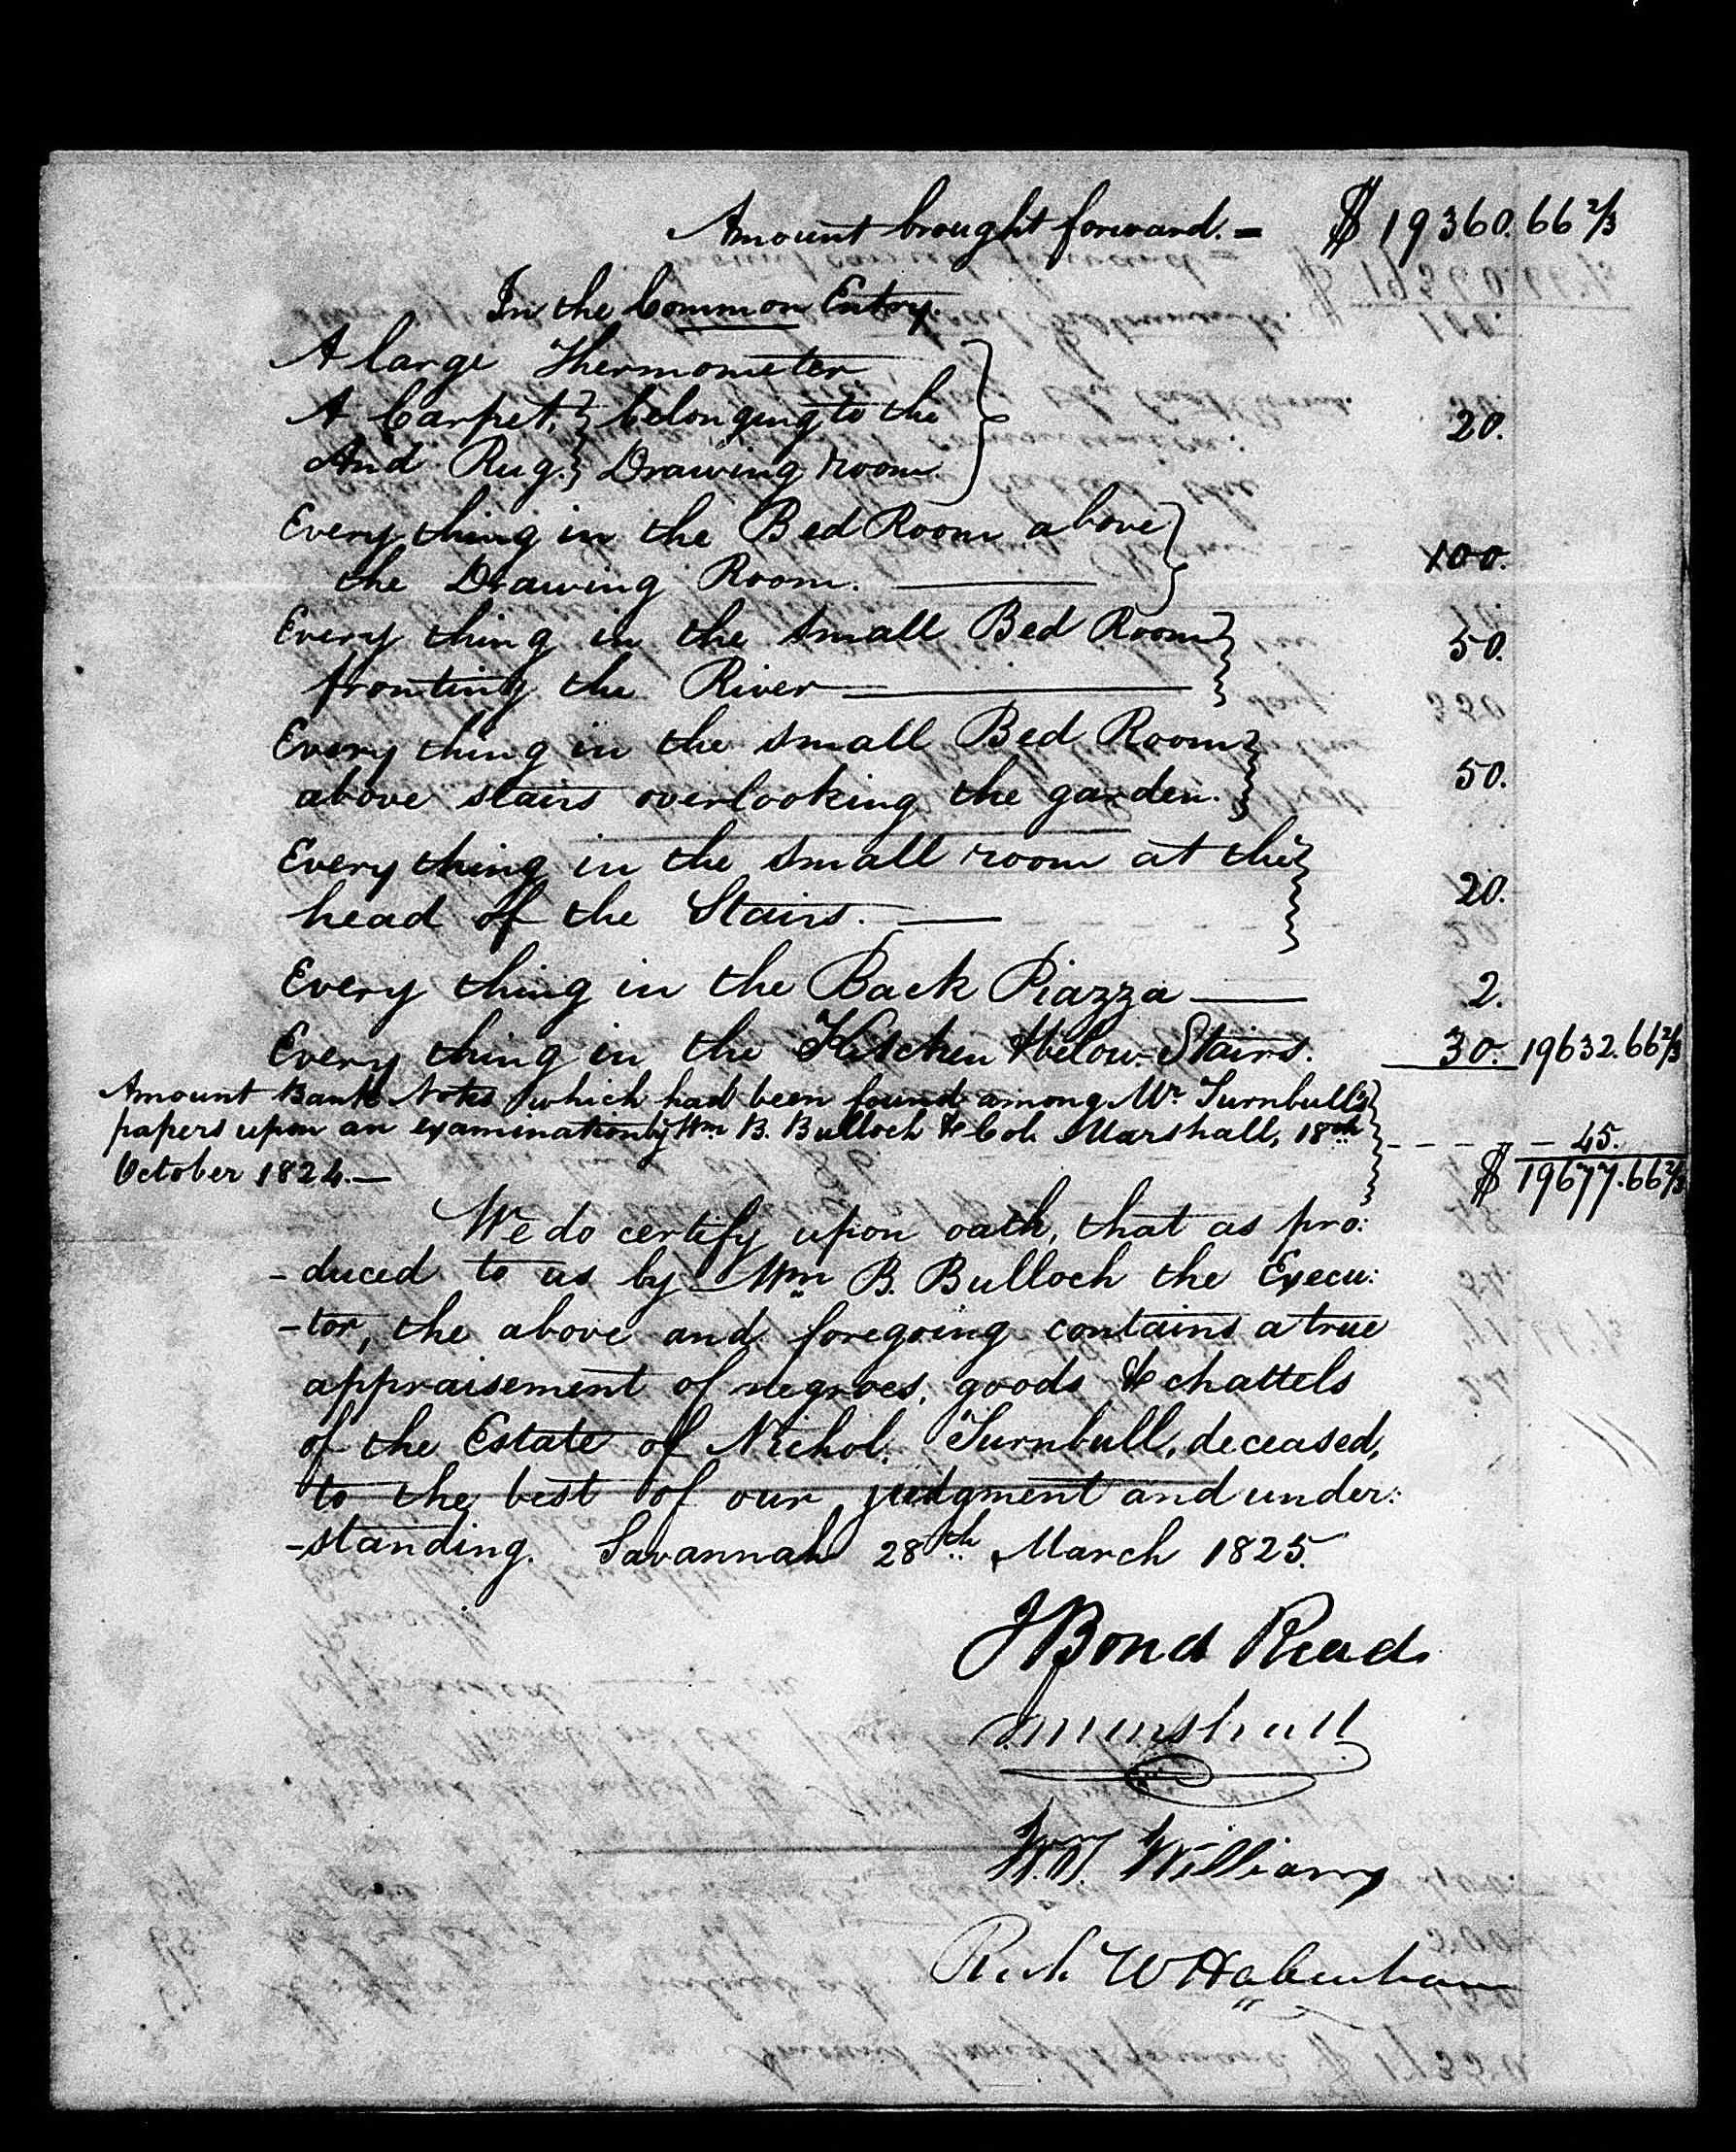 Amount brought forward. = $ 19360.66 2/3
In the Common Entry.
A large Thermometer
A Carpet, } belonging to the } 20.
And Rug. } Drawing room.
Every thing in the Bed Room above }
the Drawing Room. — 100.
Every thing in the small Bed Room } 50.
fronting the River —
Every thing in the small Bed Room }
above stairs overlooking the garden. 50.
Every thing in the small room at the }
head of the Stairs. — 20.
Every thing in the Back Piazza — 2.
Every thing in the Kitchen & below Stairs. 30. 19632.66 2/3
Amount Bank Notes which had been found among Mr. Turnbull's }
papers upon an examination by Wm B. Bulloch & Col. Marshall, 18th - - - - 45.
October 1824. — $ 19677.66 2/3
We do certify upon oath, that as pro:
-duced to us by Wm B. Bulloch the Execu:
-tor, the above and foregoing contains a true
appraisement of negroes, goods & chattels
of the Estate of Nichol. Turnbull, deceased,
to the best of our judgment and under:
-standing. Savannah 28th March 1825.
J Bond Read
Marshall
Wm. Williams
Rich. W Habersham